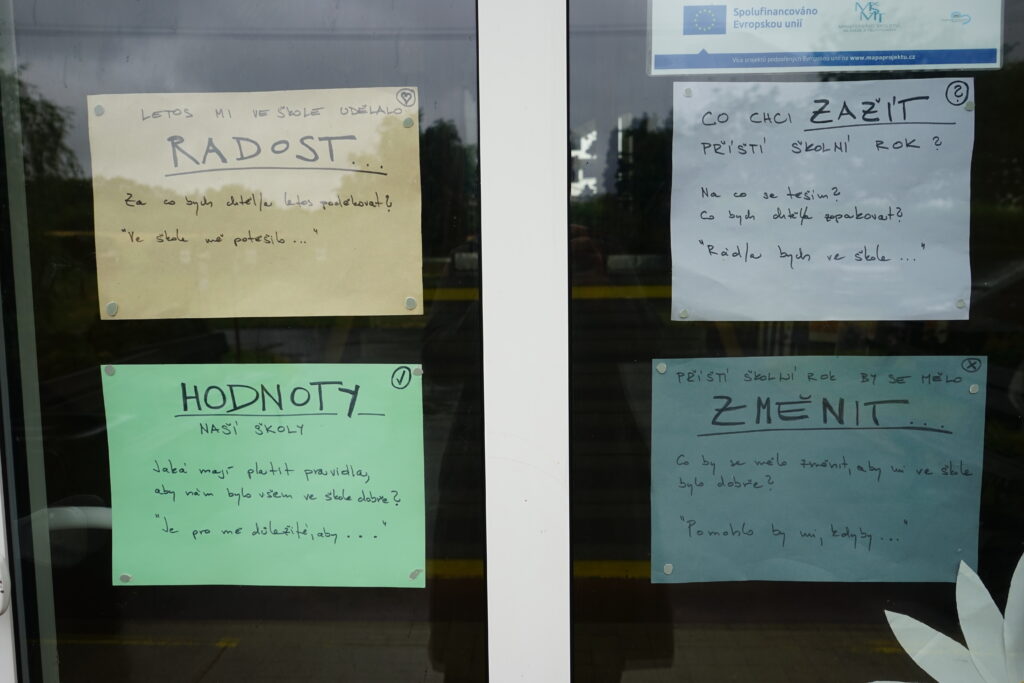 LETOS MI VE ŠKOLE UDĚLALO
RADOST...
Za co bych chtěl/a letos poděkovat?
"Ve škole mě potěšilo..."
HODNOTY
NAŠÍ ŠKOLY
Jaká mají platit pravidla,
aby nám bylo všem ve škole dobře?
"Je pro mě důležité, aby ..."
Spolufinancováno
Evropskou unií
MŠMT
Více projektů podpořených Evropskou unií na www.mapaprojektu.cz
?
CO CHCI ZAŽÍT
PŘÍŠTÍ ŠKOLNÍ ROK?
Na co se těším?
Co bych chtěl/a zopakovat?
"Rád/a bych ve škole ..."
PŘÍŠTÍ ŠKOLNÍ ROK BY SE MĚLO
ZMĚNIT...
Co by se mělo změnit, aby mi ve škole
bylo dobře?
"Pomohlo by mi, kdyby..."